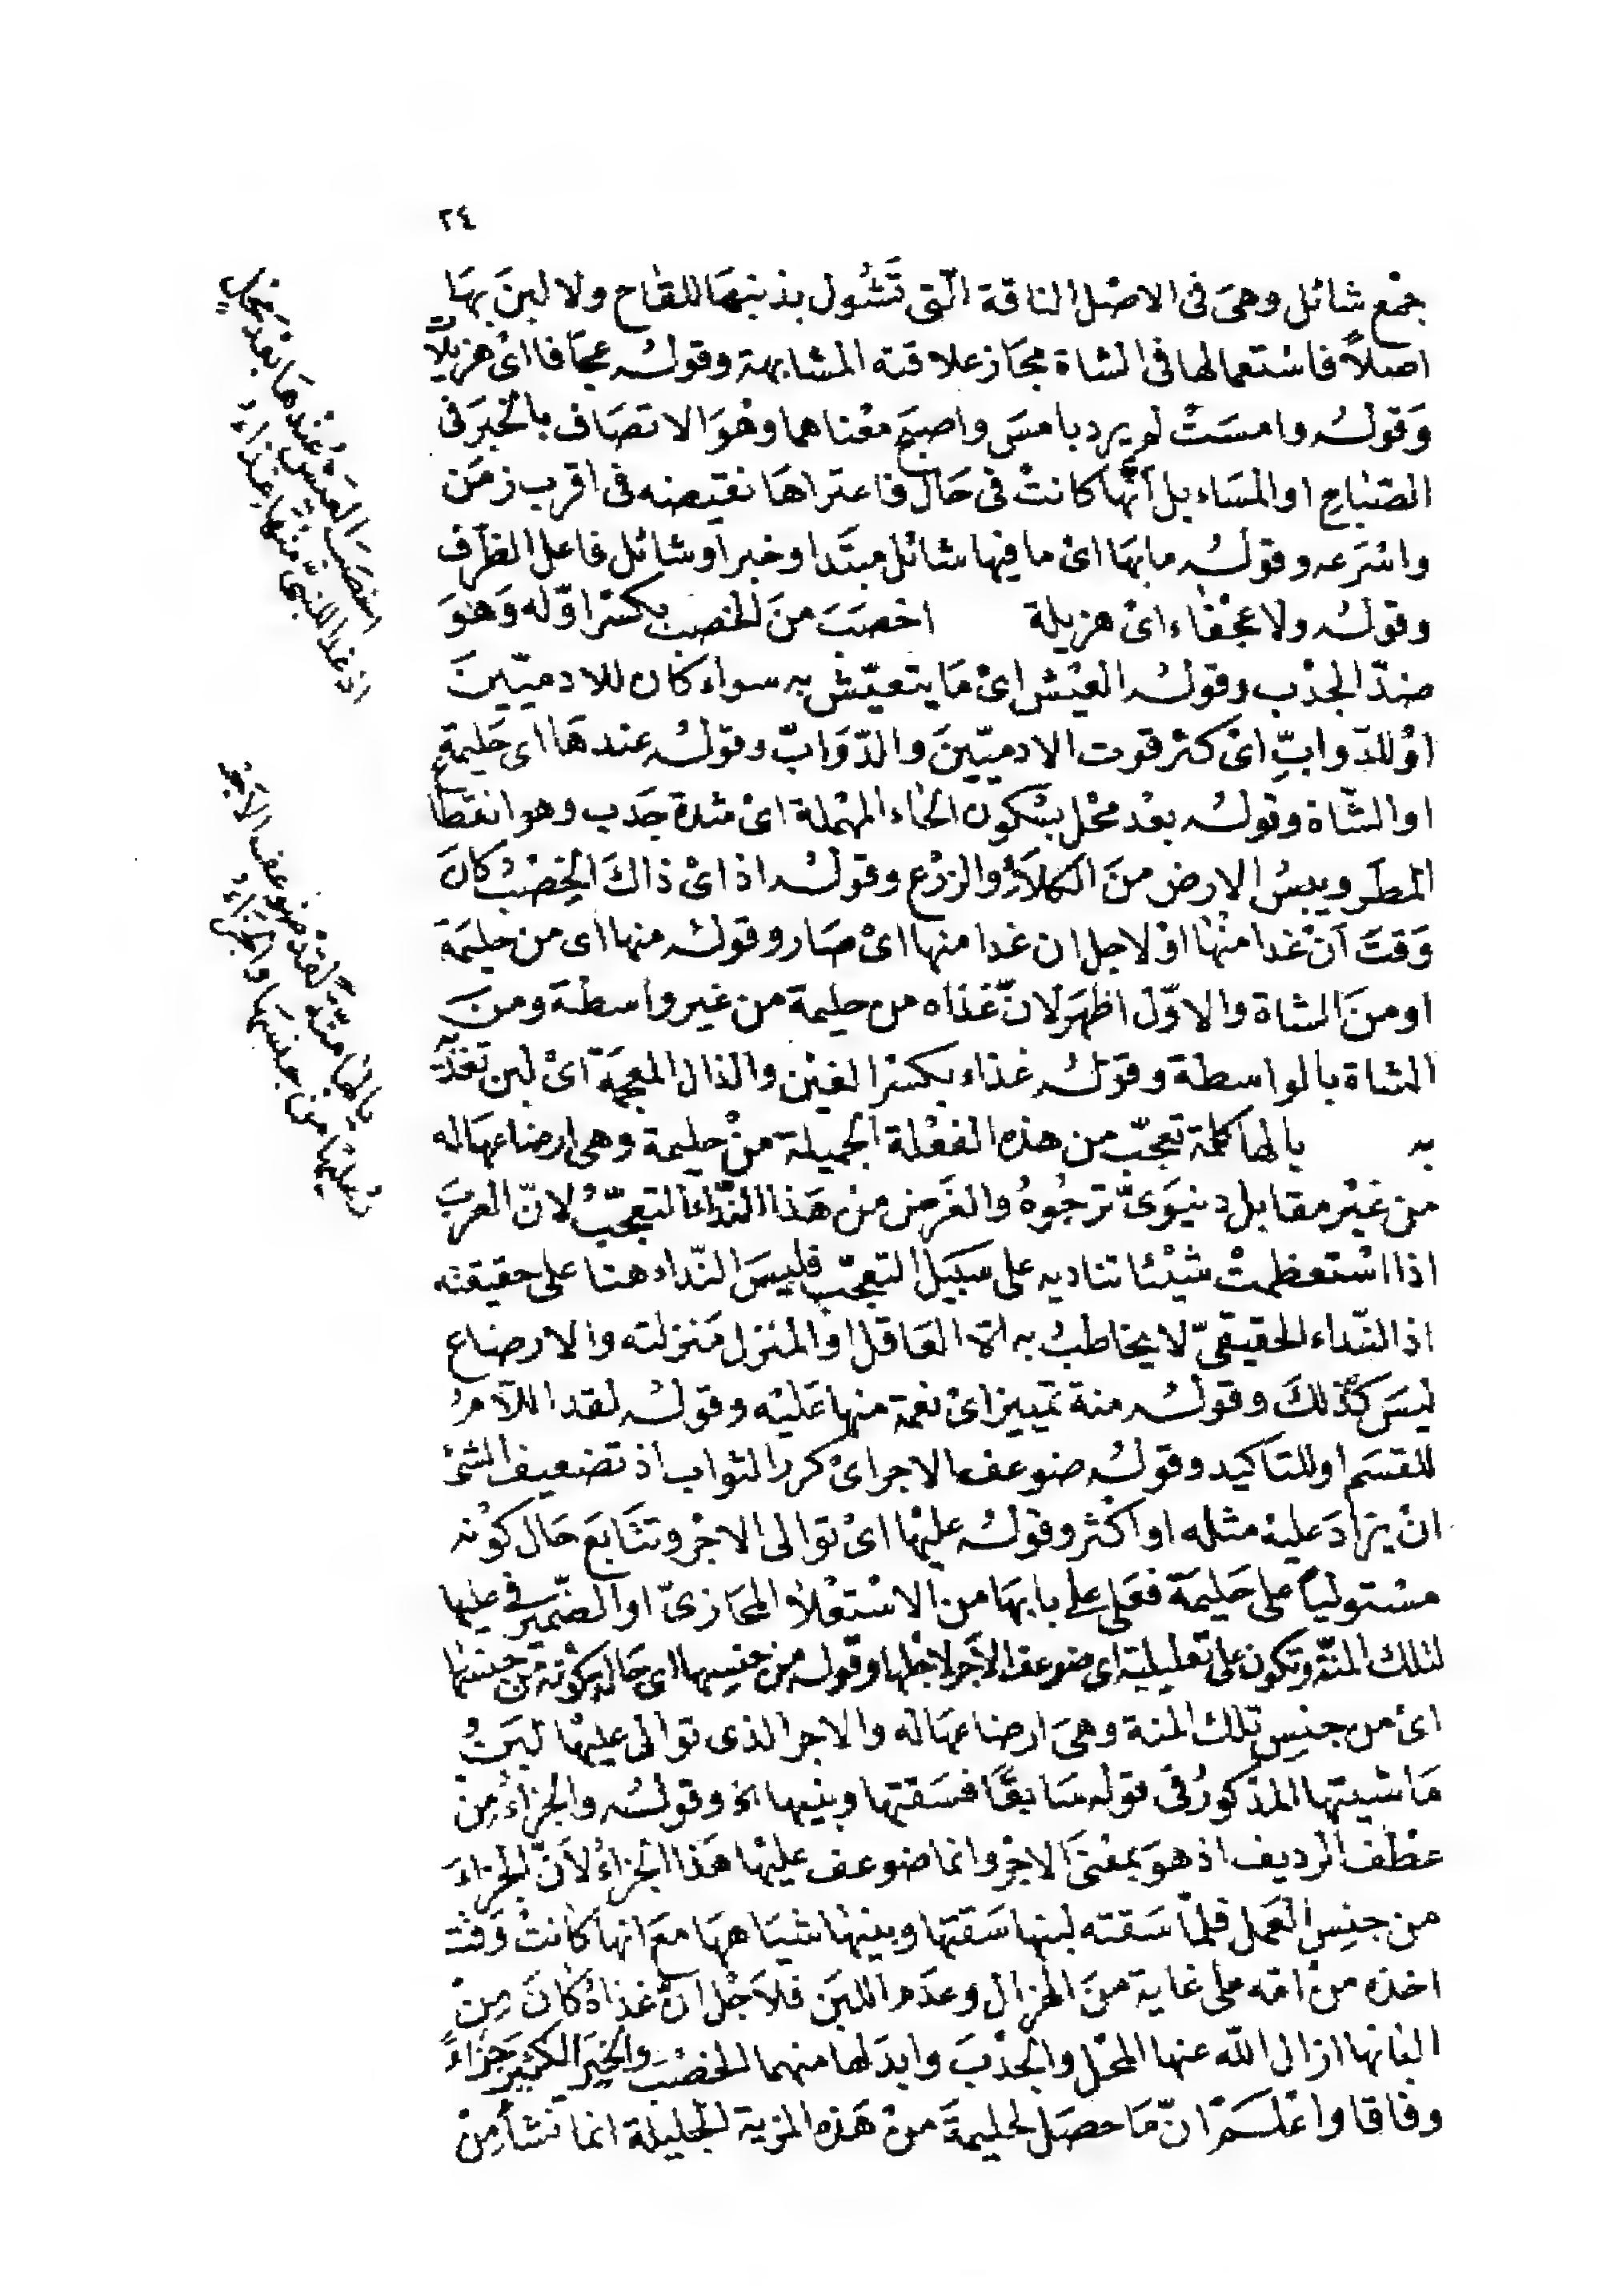 ٢٤
جمْع شائل وهىَ فى الاصْل الناقة الّتى تَشُول بذنبهَا للقاح ولا لبنَ بهَا
اصلاً فاسْتعمالها فى الشاة مجَاز علاقته المشابهة وقولُه عجَافا اىْ هزيلاً
وَقولُه وامسَتْ لم يرد بامسَى واصبَح معْناهما وهُوَ الاتصَاف بالخبَر فى
الصّباح او المسَاء بل انّها كانتْ فى حَال فاعتراهَا نقيضه فى اقرب زمَن
واسْرَعه وقولُه مابهَا اىْ ما فيها شائل مبتَدا وخبر او شائل فاعل الظرْف
وقولُه ولا عجْفَاء اىْ هزيلة اخصَبَ منَ الخصْب بكسْر اوّله وَهْوَ
ضدّ الجدْب وقولُه العيْش اىْ مَا يتعيّش به سواء كان للادميّينَ
اوْ للدّوابّ اىْ كثر قوت الادميّينَ والدّوَابّ وقولُه عندهَا اى حَليمة
او الشّاة وقولُه بعْد محْل بسْكون الحاء المهْملة اىْ شدة جَدب وهو انقطاع
المطَر ويبسُ الارض منَ الكلأ والزرْع وقولُه اذ اىْ ذاكَ الخِصْبُ كانَ
وَقتَ اَنْ غدا منْها اوْ لاجل ان غدا منها اىْ صَار وقولُه منها اى من حليمَة
او منَ الشاة والاوّل اظهَر لانّ غذاه من حليمة من غير واسطَة ومنَ
الشاة بالواسطة وقولُه غذاء بكسْر الغيْن والذال المعجَمة اىْ لبن تغذّيه
به يالها كلمة تعجّب من هذه الفعْلة الجميلة منْ حليمة وهى ارضاعهَا له
من غيْر مقابل دنيوَىّ ترجُوهُ والغَرض منْ هَذا النّداء التعجّبُ لانّ العربَ
اذا اسْتعظمتْ شيْئا تناديه على سَبيل التعجّب فليسَ النّداء هنا على حقيقته
اذ النّداء الحقيقىّ لا يخاطبُ به الا العَاقل او المنزل مَنزلته والارضاع
ليسَ كذلكَ وقولُه منة تمْييز اىْ نعمة منها عَليْه وقولُه لقد اللاّمُ
للقسَم او للتاكيد وقولُه ضوعف الاجر اىْ كرر الثواب اذ تضعيف الشئ
انْ يزادَ عليْه مثله او اكثر وقولُه عليْها اىْ توالى الاجْر وتتَابَع حَال كوْنه
مسْتولياً على حَليمَة فعَلى على بابهَا من الاسْتعْلاء المجَازىّ او الضّمير فى عليها
لتلك المنّة وتكون على تعليلية اى ضوعف الأجر لاجلها وقوله منْ جنسِها اى حَال كوْنه منْ جنسها
اىْ من جنسِ تلك المنة وهىَ ارضاعهَا له والاجر الذى توالى عليْها لبَنُ
مَاشيتها المذكورُ فى قوله سَابقًا فسَقتها وبنيها الخ وقولُه والجزاءُ منْ
عطْف الرديف اذ هوَ بمعْنى الاجْر وانما ضوعف عليْها هَذا الجزاءُ لأنّ الجزاءَ
من جنسِ العَمل فلمّا سَقته لبنها سَقتها وبنيْها شيَاهها معَ انها كانتْ وَقت
اخذه منْ امّه على غاية منَ الهزال وعدَم اللبَن فلاَجْل انّ غذاهُ كانَ مِنْ
البانها ازال اللّه عنها المحْل والجدْبَ وابدَلها منهما الخصْبَ والخيرَ الكثيرَ جزاءً
وفاقا واعْلَمْ انّ مَا حصَل لحليمةَ منْ هَذه المزية الجَليلة انما نشأ مِنْ
اخصَبَ العَيْشُ عنْدهَا بعْدَ محْلٍ
اذ غدا للنبىّ منْها غذاءُ
يالها منّةً لقدْ ضوعف الأجْرُ
عليْها من جنْسهَا والجزَاءُ